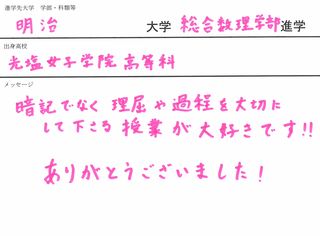 進学先大学　学部・科類等
明治 大学 総合数理学部 進学
出身高校
光塩女子学院高等科
メッセージ
暗記でなく 理屈や過程を大切に
して下さる 授業が大好きです!!
ありがとうございました!